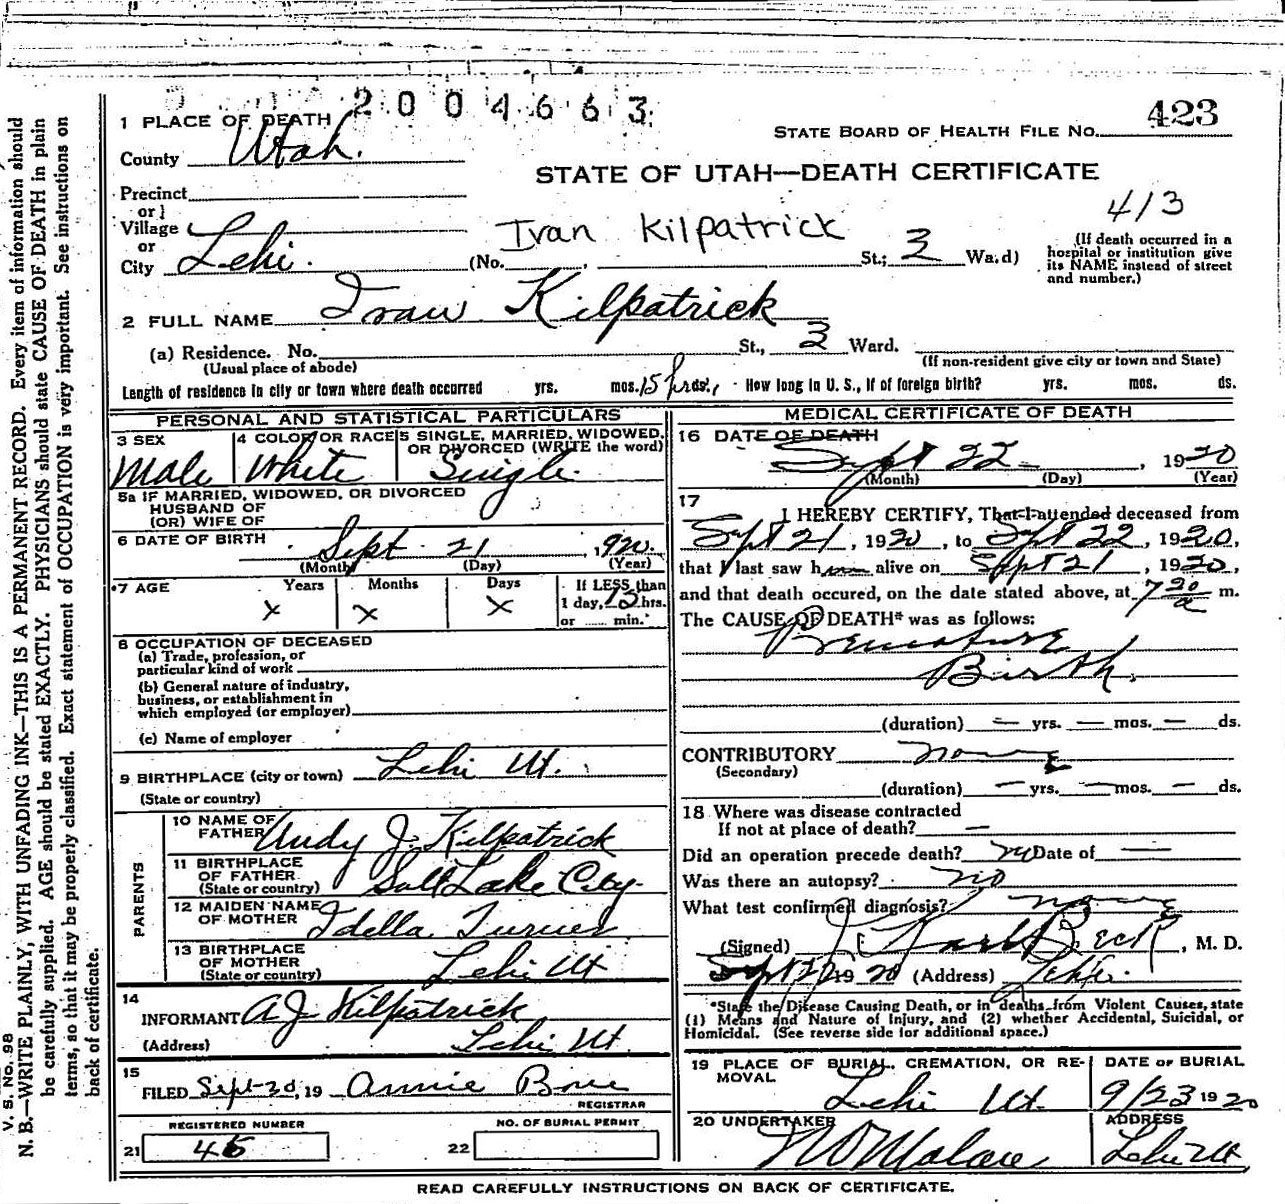 2004663
1 PLACE OF DEATH
STATE BOARD OF HEALTH FILE NO. 423
County Utah.
STATE OF UTAH—DEATH CERTIFICATE
Precinct
or
Village
or
413
Ivan Kilpatrick
City Lehi. (No. , St.; 3 Ward)
(If death occurred in a
hospital or institution give
its NAME instead of street
and number.)
2 FULL NAME Ivan Kilpatrick
(a) Residence. No. St., 3 Ward.
(Usual place of abode) (If non-resident give city or town and State)
Length of residence in city or town where death occurred yrs. mos. 15 hrs ds. How long in U. S., if of foreign birth? yrs. mos. ds.
PERSONAL AND STATISTICAL PARTICULARS
3 SEX Male
4 COLOR OR RACE White
5 SINGLE, MARRIED, WIDOWED,
OR DIVORCED (WRITE the word)
Single
5a IF MARRIED, WIDOWED, OR DIVORCED
HUSBAND OF
(OR) WIFE OF
6 DATE OF BIRTH Sept 21, 1920
(Month) (Day) (Year)
7 AGE Years Months Days If LESS than
x x x 1 day, 15 hrs.
or min.
8 OCCUPATION OF DECEASED
(a) Trade, profession, or
particular kind of work
(b) General nature of industry,
business, or establishment in
which employed (or employer)
(c) Name of employer
9 BIRTHPLACE (city or town) Lehi Ut.
(State or country)
PARENTS
10 NAME OF
FATHER Andy J. Kilpatrick
11 BIRTHPLACE
OF FATHER
(State or country) Salt Lake City.
12 MAIDEN NAME
OF MOTHER Idella Turner
13 BIRTHPLACE
OF MOTHER
(State or country) Lehi Ut
14
INFORMANT A J Kilpatrick
(Address) Lehi Ut.
15
FILED Sept 20, 19 Annie
REGISTRAR
REGISTERED NUMBER
NO. OF BURIAL PERMIT
21 45 22
MEDICAL CERTIFICATE OF DEATH
16 DATE OF DEATH
Sept 22, 1920
(Month) (Day) (Year)
17
I HEREBY CERTIFY, That I attended deceased from
Sept 21, 1920, to Sept 22, 1920,
that I last saw him alive on Sept 21, 1920,
and that death occured, on the date stated above, at 7 20 a m.
The CAUSE OF DEATH* was as follows:
Premature
Birth.
(duration) — yrs. — mos. — ds.
CONTRIBUTORY none
(Secondary)
(duration) — yrs. — mos. — ds.
18 Where was disease contracted
If not at place of death? —
Did an operation precede death? no Date of —
Was there an autopsy? no
What test confirmed diagnosis? none
(Signed) Karl Beck, M. D.
Sept 22 1920 (Address) Lehi.
*State the Disease Causing Death, or in deaths from Violent Causes, state
(1) Means and Nature of Injury, and (2) whether Accidental, Suicidal, or
Homicidal. (See reverse side for additional space.)
19 PLACE OF BURIAL, CREMATION, OR RE-
MOVAL Lehi Ut.
DATE OF BURIAL
9/23 1920
20 UNDERTAKER
Malone
ADDRESS
Lehi Ut
READ CAREFULLY INSTRUCTIONS ON BACK OF CERTIFICATE.
V. S. No. 98
N. B.—WRITE PLAINLY, WITH UNFADING INK—THIS IS A PERMANENT RECORD. Every item of information should
be carefully supplied. AGE should be stated EXACTLY. PHYSICIANS should state CAUSE OF DEATH in plain
terms, so that it may be properly classified. Exact statement of OCCUPATION is very important. See instructions on
back of certificate.